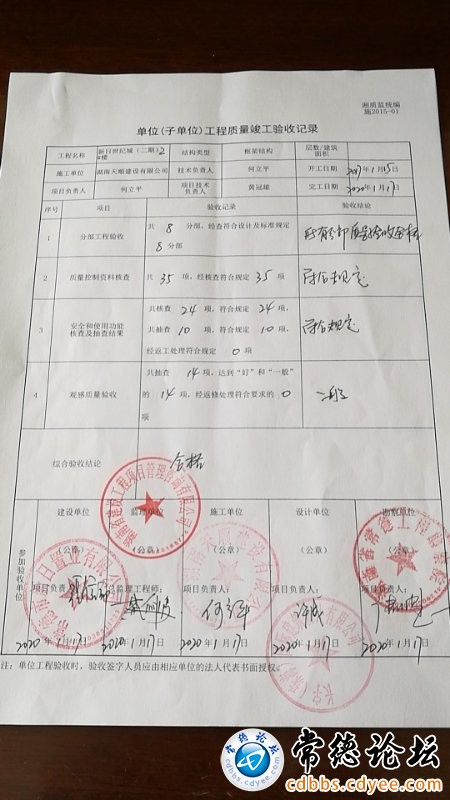 湘质监统编
施2015-01
单位(子单位)工程质量竣工验收记录
工程名称 新日世纪城(二期)2#楼 结构类型 框架结构 层数/建筑面积
施工单位 湖南天顺建设有限公司 技术负责人 何立平 开工日期 2017年1月15日
项目负责人 何立平 项目技术负责人 黄冠雄 完工日期 2020年1月17日
序号 项目 验收记录 验收结论
1 分部工程验收 共 8 分部,经查符合设计及标准规定 8 分部 所有分部质量验收合格
2 质量控制资料核查 共 35 项,经核查符合规定 35 项 符合规定
3 安全和使用功能核查及抽查结果 共核查 24 项,符合规定 24 项
共抽查 10 项,符合规定 10 项,
经返工处理符合规定 0 项 符合规定
4 观感质量验收 共抽查 14 项,达到“好”和“一般”
的 14 项,经返修处理符合要求的 0
项
综合验收结论 合格
参加验收单位
建设单位 监理单位 施工单位 设计单位 勘察单位
(公章) (公章) (公章) (公章) (公章)
项目负责人: 总监理工程师: 项目负责人: 项目负责人: 项目负责人:
何立平
2020年1月17日 2020年1月17日 2020年1月17日 2020年1月17日 2020年1月17日
注:单位工程验收时,验收签字人员应由相应单位的法人代表书面授权。
常德论坛
cdbbs.cdyee.com